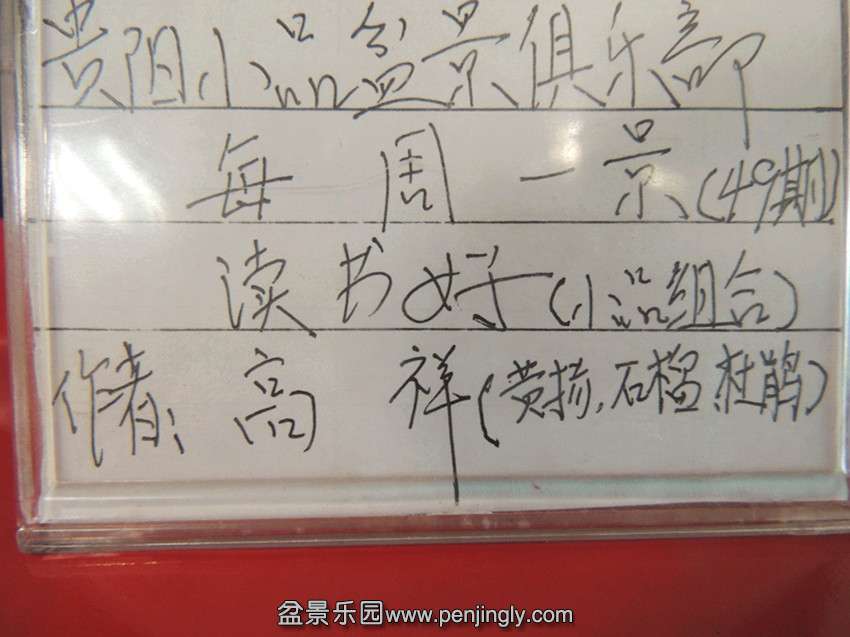 贵阳小品盆景俱乐部
每 周 一 景(49期)
读书好(小品组合)
作者:高 祥(黄杨,石榴,杜鹃)
盆景乐园www.penjingly.com